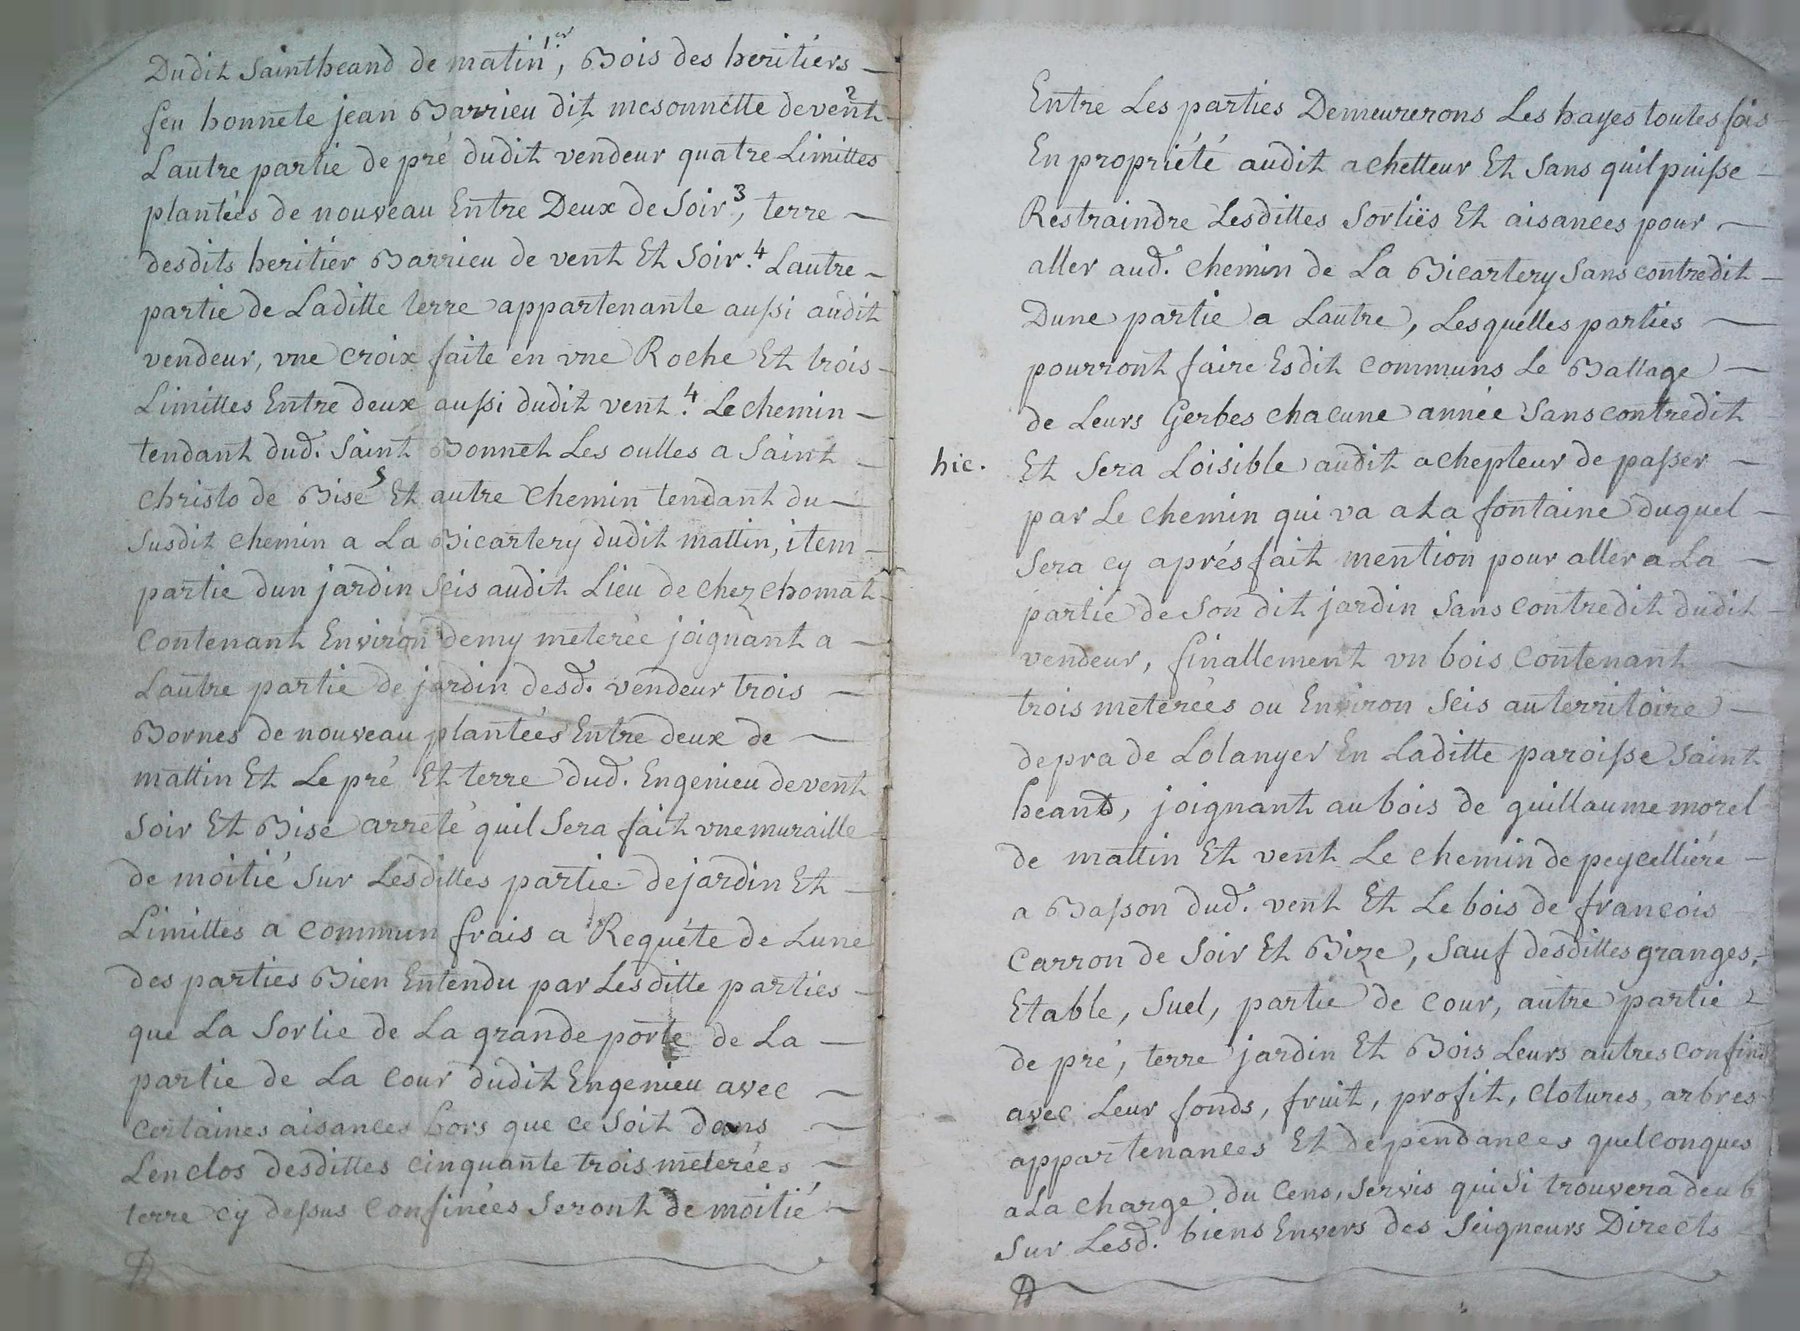 Dudit Saintheand de matin 1er, Bois des heritiérs
feu honnete jean Barrieu dit mesonnétte de vent 2
Lautre partie de pré dudit vendeur quatre Limittes
plantéés de nouveau Entre Deux de Soir 3, terre
desdits heritiér Barrieu de vent Et Soir. 4 Lautre
partie de Laditte terre appartenante aussi audit
vendeur, vne croix faite en vne Roche Et trois
Limittes Entre deux aussi dudit vent. 4 Le chemin
tendant dud. Saint Bonnet Les oulles a Saint
christo de Bise 5 Et autre chemin tendant du
Susdit chemin a La Bicartery dudit mattin, item
partie dun jardin Seis audit Lieu de chez chomat
contenant Environ demy meterée joignant a
Lautre partie de jardin desd. vendeur trois
Bornes de nouveau plantéés Entre deux de
mattin Et Le pré Et terre dud. Engenieu de vent
Soir Et Bise arreté quil Sera fait vne muraille
de moitié Sur Lesdittes partie de jardin Et
Limittes a commun frais a Requéte de Lune
des parties Bien Entendu par Lesditte parties
que La Sortie de La grande porte de La
partie de La cour dudit Engenieu avec
certaines aisances hors que ce Soit dans
Lenclos desdittes cinquante trois meteréés
terre cy dessus confinées Seront de moitié
Entre Les parties Demeurerons Les hayes toutes fois
En propriété audit achetteur Et Sans quil puisse
Restraindre Lesdittes Sortiës Et aisances pour
aller aud. chemin de La Bicartery Sans contredit
Dune partie a Lautre, Lesquelles parties
pourront faire Esdit communs Le Battage
de Leurs Gerbes chacune année Sans contredit
hic. Et Sera Loisible audit achepteur de passer
par Le chemin qui va a La fontaine duquel
Sera cy aprés fait mention pour aller a La
partie de Son dit jardin Sans contredit dudit
vendeur, finallement vn bois contenant
trois meterées ou Environ Seis au territoire
de pra de Lolanyer En Laditte paroisse Saint
heand, joignant au bois de guillaume morel
de mattin Et vent Le chemin de peycelliére
a Basson dud. vent Et Le bois de francois
Carron de Soir Et Bize, Sauf desdittes granges,
Etable, Suel, partie de cour, autre partie
de pré, terre jardin Et Bois Leurs autres confins
avec Leur fonds, fruit, profit, clotures, arbres
appartenances Et dependances quelconques
a La charge du Cens, Servis qui Si trouvera deub
Sur Lesd. biens Envers des Seigneurs Directs